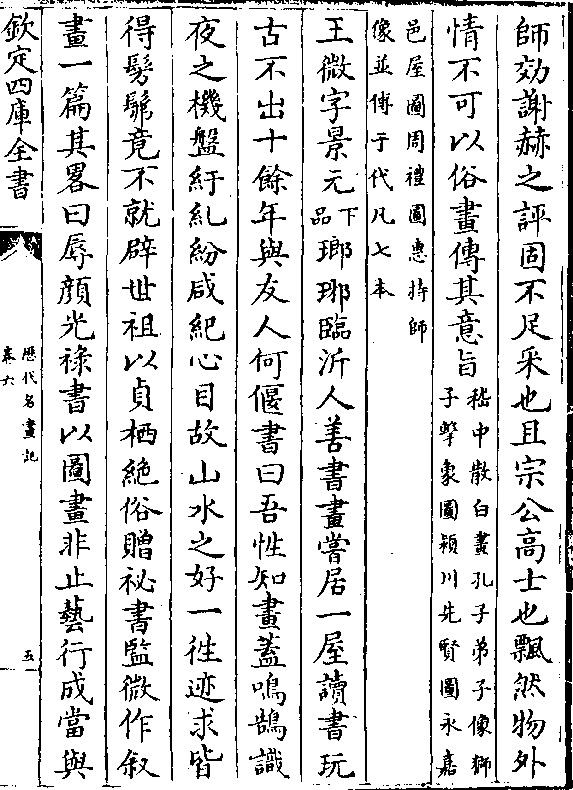 師効謝赫之評固不足采也且宗公高士也飄然物外
情不可以俗畫傳其意旨
嵇中散白畫孔子弟子像獅
子擊象圖潁川先賢圖永嘉
邑屋圖周禮圖惠持師
像並傳于代凡七本
王微字景元
下
品
瑯琊臨沂人善書畫嘗居一屋讀書玩
古不出十餘年與友人何偃書曰吾性知畫蓋鳴鵠識
夜之機盤紆糺紛咸紀心目故山水之好一徃迹求皆
得髣髴竟不就辟世祖以貞栖絶俗贈祕書監微作叙
畫一篇其畧曰辱顔光祿書以圖畫非止藝行成當與
欽定四庫全書
歴代名畫記
卷六
五